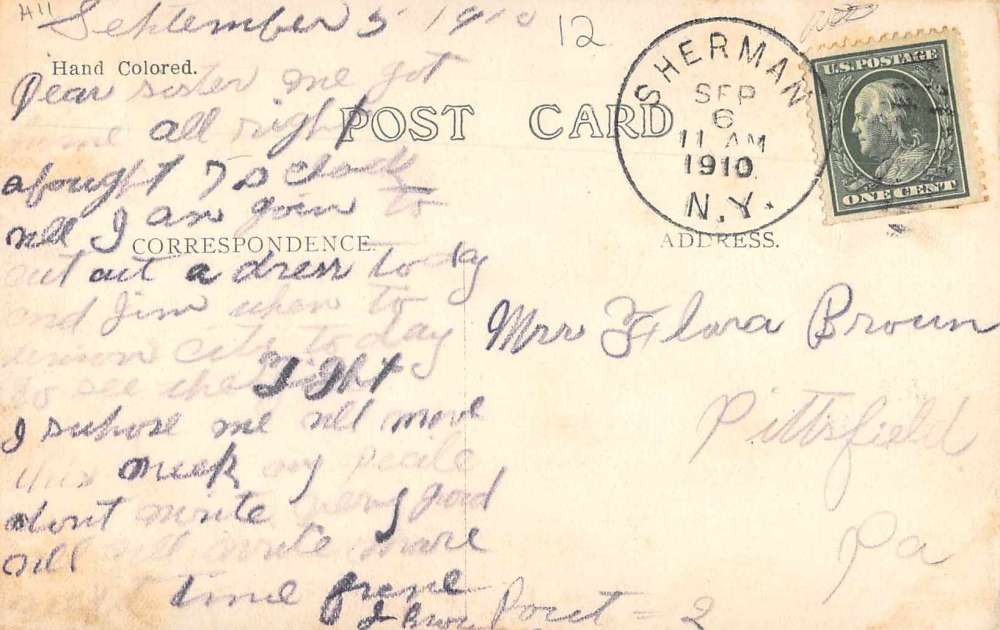 A11
September 5 1910
12
Hand Colored.
POST CARD
SHERMAN
SEP
6
11 AM
1910
N.Y.
U.S. POSTAGE
ONE CENT
Dear sister me got
home all right
afought 7 o clock
well I am goin to
CORRESPONDENCE.
ADDRESS.
cut out a dress to day
and Jim when to
union city to day
to see the fight
I suhose we well move
this week my pecile
dont write very good
well well write more
next time Irene
Mrs Flora Brown
Pittsfield
Pa